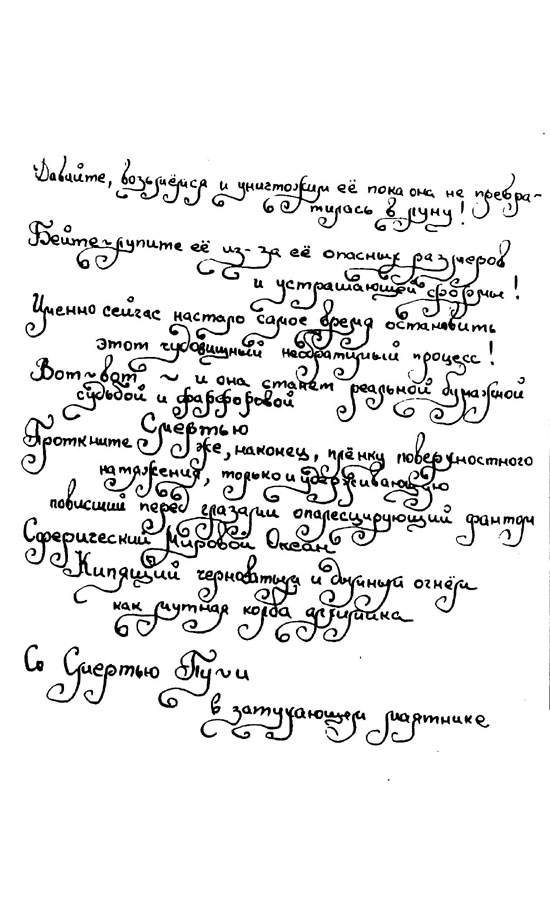 Давайте, возьмёмся и уничтожим её пока она не превра-
тилась в луну!
Бейте~лупите её из-за её опасных размеров
и устрашающей формы!
Именно сейчас настало самое время остановить
этот чудовищный необратимый процесс!
Вот~вот ~ и она станет реальной бумажной
судьбой и фарфоровой
Смертью
Проткните же, наконец, плёнку поверхностного
натяжения, только и удерживающую
повисший перед глазами опалесцирующий фантом
Сферический Мировой Океан
Кипящий черноватым и дымным огнём
как мутная колба алхимика
Со Смертью Пучи
в затухающем маятнике